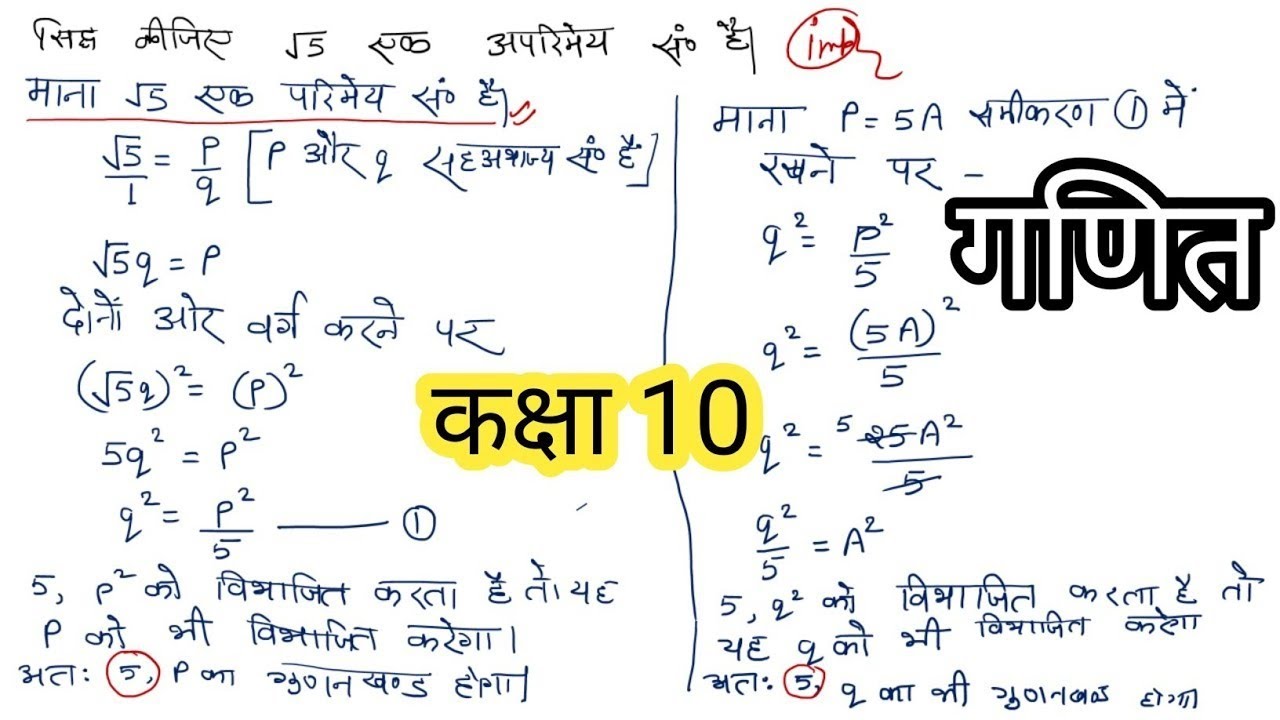 सिद्ध कीजिए √5 एक अपरिमेय सं० है। imp
माना √5 एक परिमेय सं० है।
√5/1 = P/q [P और q सहअभाज्य सं० है]
√5q = P
दोनों ओर वर्ग करने पर
(√5q)² = (P)²
5q² = P²
q² = P²/5 ——— ①
5, P² को विभाजित करता है तो यह
P को भी विभाजित करेगा।
अतः 5, P का गुणनखण्ड होगा।
माना P = 5A समीकरण ① में
रखने पर –
q² = P²/5
q² = (5A)²/5
q² = 5 25A²/5
q²/5 = A²
5, q² को विभाजित करता है तो
यह q को भी विभाजित करेगा
अतः 5, q का भी गुणनखण्ड होगा
गणित
कक्षा 10